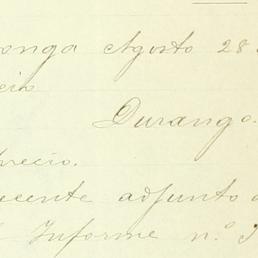 onga Agosto 28
cio
Durango.
precio.
ecente adjunto
Informe n.º